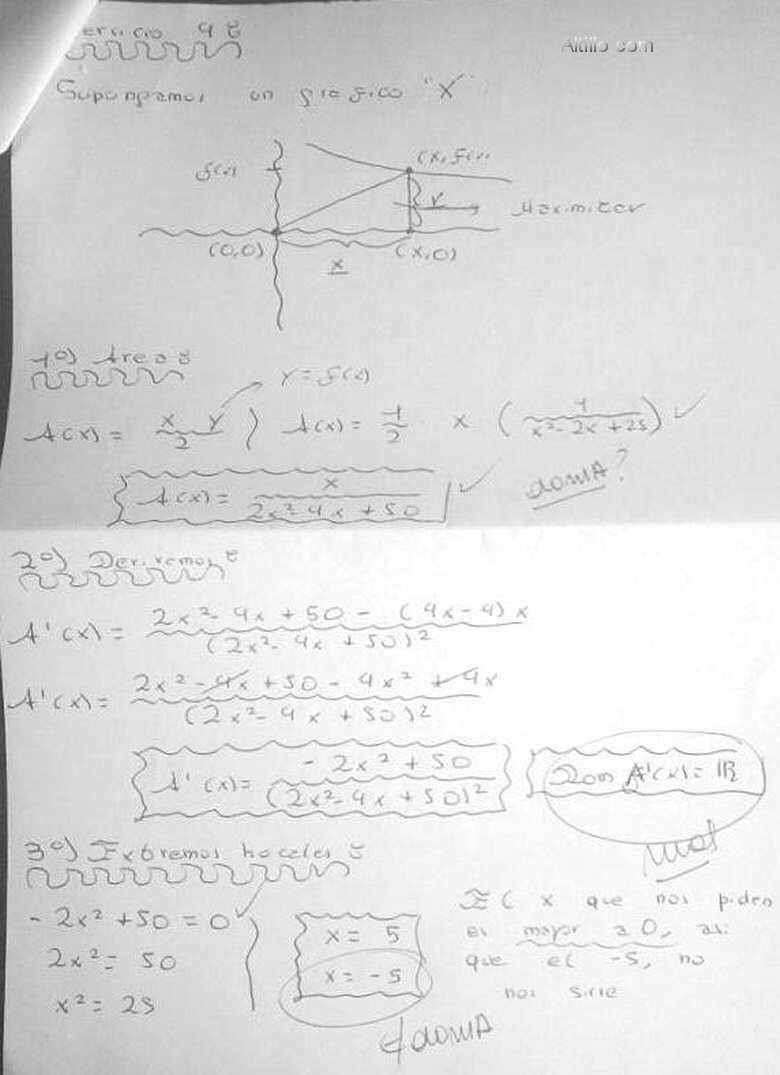 ercicio 4:
Altillo.com
Supongamos un grafico "X"
f(x) (x, f(x)
y Maximizar
(0,0) x (x,0)
1º) Area:
y = f(x)
A(x) = x y / 2 } A(x) = 1/2 · x · (1 / x² - 2x + 25) ✓
A(x) = x / 2x² - 4x + 50 ✓ domA?
2º) Derivemos:
A'(x) = 2x² - 4x + 50 - (4x - 4) x / (2x² - 4x + 50)²
A'(x) = 2x² - 4x + 50 - 4x² + 4x / (2x² - 4x + 50)²
A'(x) = - 2x² + 50 / (2x² - 4x + 50)² Dom A'(x) = IR
mal
3º) Extremos locales:
- 2x² + 50 = 0 ✓
2x² = 50
x² = 25
x = 5
x = - 5
∉ domA
El x que nos piden
es mayor a 0, asi
que el -5, no
nos sirve